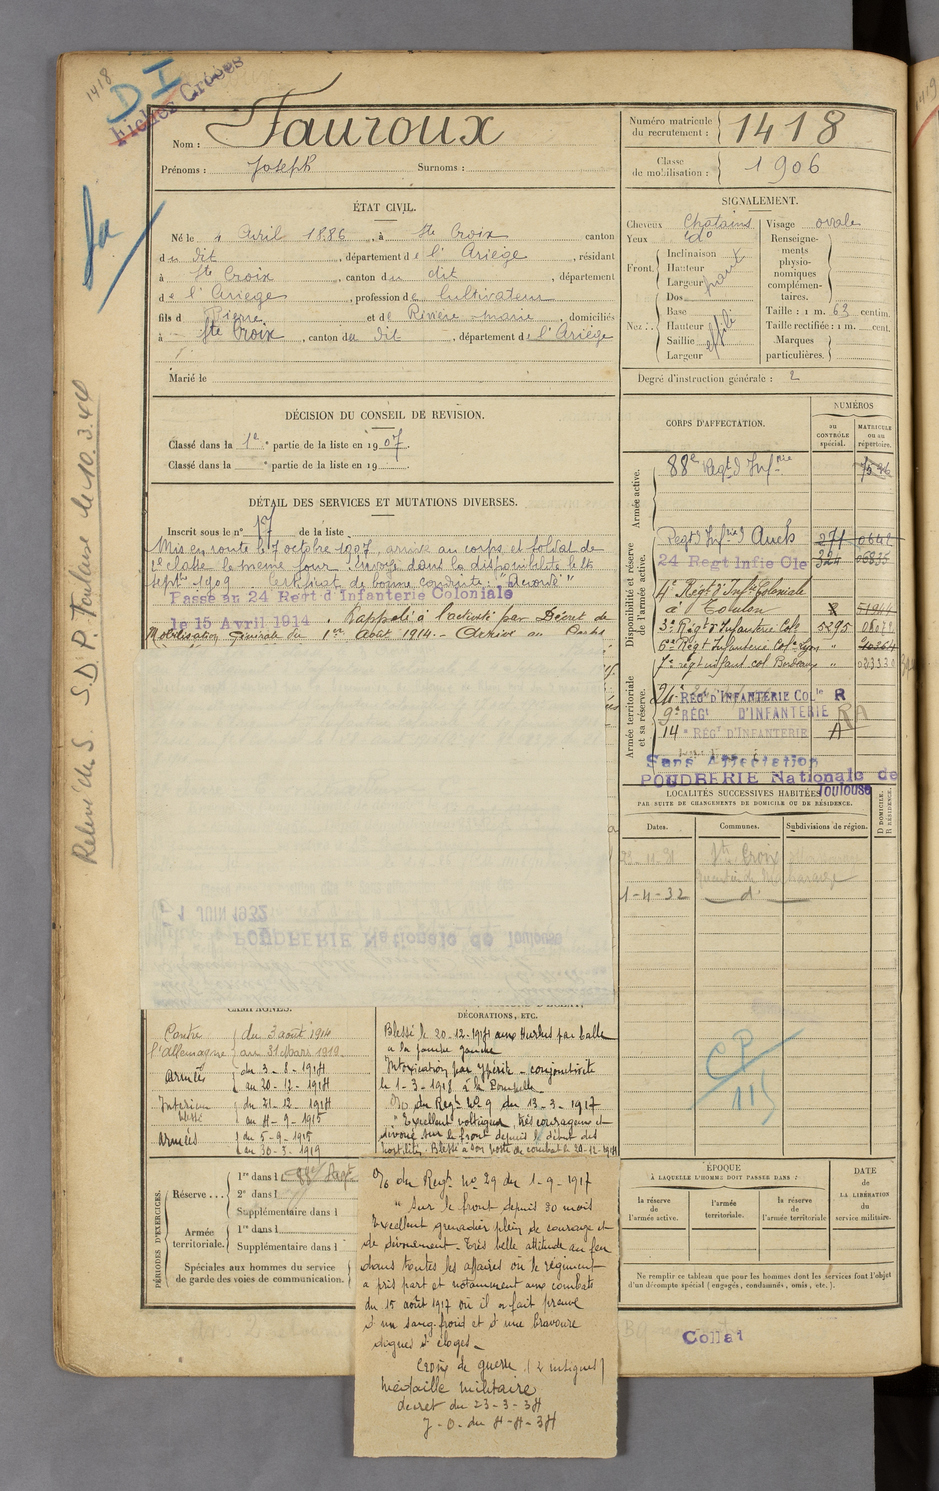 1418
DI
Fiches Créées
Nom : Fauroux
Prénoms : Joseph Surnoms :
Numéro matricule du recrutement : 1418
Classe de mobilisation : 1906
ÉTAT CIVIL.
Né le 4 Avril 1886, à Ste Croix canton
du dit, département de l'Ariège, résidant
à Ste Croix, canton du dit, département
de l'Ariège, profession de Cultivateur
fils d Pierre et de Rivière Marie, domiciliés
à Ste Croix, canton du dit, département de l'Ariège
Marié le
SIGNALEMENT.
Cheveux Chatains Visage ovale
Yeux do
Front. Inclinaison
Hauteur
Largeur haut
Nez : Dos
Base
Hauteur
Saillie
Largeur effilé
Renseignements physionomiques complémentaires.
Taille : 1 m. 63 centim.
Taille rectifiée : 1 m. cent.
Marques particulières.
Degré d'instruction générale : 2
DÉCISION DU CONSEIL DE REVISION.
Classé dans la 1e partie de la liste en 1907.
Classé dans la e partie de la liste en 19
DÉTAIL DES SERVICES ET MUTATIONS DIVERSES.
Inscrit sous le n° 17 de la liste
Mis en route le 7 octobre 1907, arrivé au corps et soldat de
2e classe le même jour. Envoyé dans la disponibilité le
septbre 1909. Certificat de bonne conduite : "Accordé"
Passé au 24 Regt d'Infanterie Coloniale
le 15 Avril 1914. Rappelé à l'activité par Décret de
Mobilisation Générale du 1er Août 1914. Arrivé au Corps
Relevé des S. S.D.P. Toulouse le 10.3.40
CORPS D'AFFECTATION.
NUMÉROS
au CONTRÔLE spécial.
MATRICULE ou au répertoire.
Armée active.
88e Regt d'Infrie
Disponibilité et réserve de l'armée active.
Regt d'Infrie Auch 271
24 Regt Infie Cle 324
4e Régt d'Infie Coloniale
à Toulon
3e Régt d'Infanterie Cole 5295
6e Régt Infanterie Cole Lyon "
7e régt infant. col. Bordeaux "
Armée territoriale et sa réserve.
24e RÉGt D'INFANTERIE COLle R
9e RÉGt D'INFANTERIE RA
14e RÉGt D'INFANTERIE A
Sans Affectation
POUDRERIE Nationale de
Toulouse
LOCALITÉS SUCCESSIVES HABITÉES
PAR SUITE DE CHANGEMENTS DE DOMICILE OU DE RÉSIDENCE.
Dates. Communes. Subdivisions de région. D DOMICILE. R RÉSIDENCE.
Ste Croix
1-4-32 d°
1 JUIN 1932
POUDRERIE Nationale de Toulouse
CAMPAGNES.
Contre l'Allemagne du 3 août 1914
au 31 Mars 1919.
Armées du 3-8-1914
au 20-12-1914
Intérieur du 21-12-1914
au 4-9-1915
Armées du 5-9-1915
au 30-3-1919
DÉCORATIONS, ETC.
Blessé le 20-12-1914 aux Hurlus par balle
à la jambe gauche
Intoxication par ypérite - conjonctivite
le 1-3-1918 à la Pompelle
O/o du Regt no 9 du 13-3-1917
"Excellent voltigeur, très courageux et
dévoué. Sur le front depuis le début des
hostilités. Blessé à son poste de combat le 20-12-1914
O/o du Regt no 29 du 1-9-1917
"Sur le front depuis 30 mois
Excellent grenadier plein de courage et
de dévouement. Très belle attitude au feu
dans toutes les affaires où le régiment
a pris part et notamment aux combats
du 15 août 1917 où il a fait preuve
d'un sang-froid et d'une bravoure
dignes d'éloges.
Croix de guerre (2 insignes)
Médaille militaire
décret du 23-3-34
J-O-du 4-4-34
PÉRIODES D'EXERCICES.
Réserve... 1re dans l 88e Regt
2e dans l
Supplémentaire dans l
Armée territoriale. 1re dans l
Supplémentaire dans l
Spéciales aux hommes du service de garde des voies de communication.
CP
115
ÉPOQUE
À LAQUELLE L'HOMME DOIT PASSER DANS :
la réserve de l'armée active. l'armée territoriale. la réserve de l'armée territoriale
DATE DE LA LIBÉRATION du service militaire.
Ne remplir ce tableau que pour les hommes dont les services font l'objet
d'un décompte spécial (engagés, condamnés, omis, etc.).
Collat